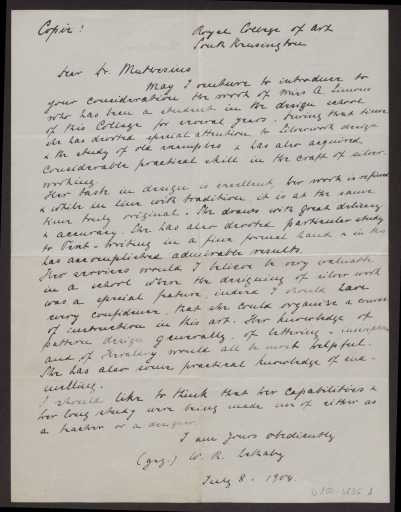 Copie:
Royal College of Art
South Kensington
Dear Dr. Muthesius
May I venture to introduce to
your consideration the work of Miss A. Simons
who has been a student in the design school
of this College for several years. During that time
she has devoted special attention to Silverwork design
& the study of old examples & has also acquired
considerable practical skill in the craft of silver-
working.
Her task in design is excellent, her work is refined
& while in line with tradition it is at the same
time truly original. She draws with great delicacy
& accuracy. She has also devoted particular study
to Print-Writing in a fine formal hand & in this
has accomplished admirable results.
Her services would I believe be very valuable
in a school where the designing of silver work
was a special feature, indeed I should have
every confidence that she could organise a course
of instruction in this art. Her knowledge of
pattern design generally, of lettering & inscription
and of Heraldry would all be most helpful.
She has also some practical knowledge of ena-
melling.
I should like to think that her capabilities &
her long study were being made use of either as
a teacher or a designer.
I am yours obediently
(gez.) W. R. Lethaby
July 8. 1904.